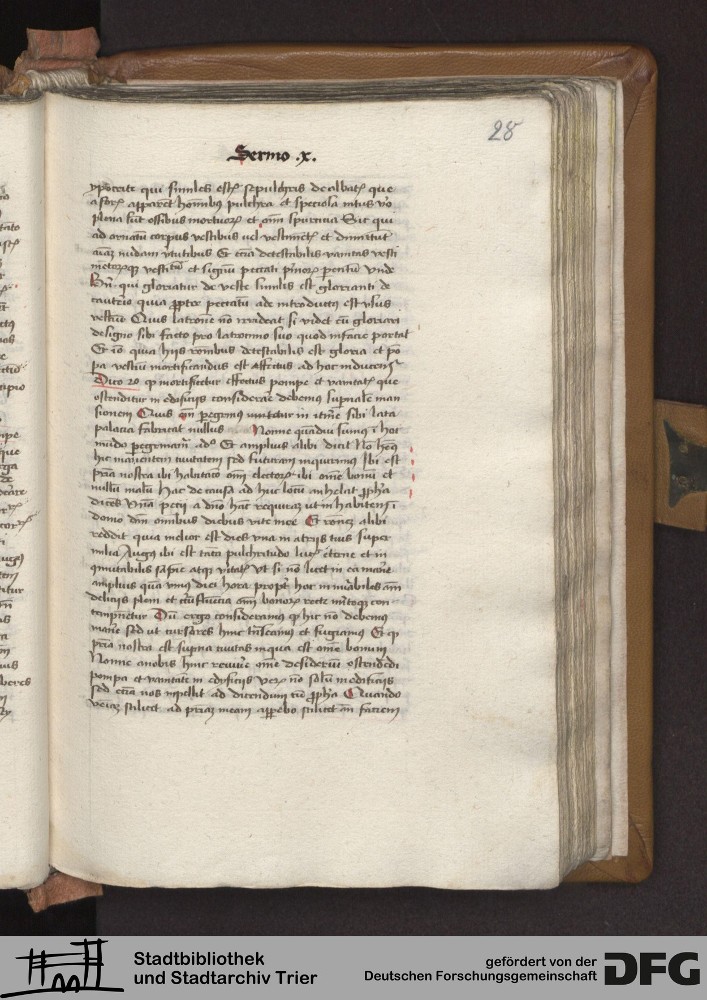 28
Sermo .x.
ypocrite qui similes estis sepulchris dealbatis que
a foris apparent hominibus pulchra et speciosa intus vero
plena sunt ossibus mortuorum et omni spurcicia Sic qui
ad ornatum corpus vestibus vel et dimittunt
nudam virtutibus Et etiam detestabilis vanitas vesti
et signum peccati Unde
qui gloriatur de veste similis est glorianti de
cauterio quia propter peccatum ade introductus est usus
vestium Quis latronem non irrideat si videt eum gloriari
de signo sibi facto pro latrocinio suo quod in facie portat
Et ideo quia hiis detestabilis est gloria et pom
pa vestium mortificandus est affectus ad hoc inducens
Dico 2o quod mortificetur effectus pompe et vanitatis que
ostenditur in edificiis considerare debemus supernale man
sionem Quis enim peregrinus in itinere sibi lata
palacia fabricat nullus Nonne quamdiu sumus in hoc
mundo peregrinamur Et amplius alibi dicit Non habemus
hic manentem civitatem sed futuram inquirimus Ibi est
patria nostra ibi habitacio omnium electorum ibi omne bonum et
nullum malum Hac de causa ad hunc locum anhelat propheta
dicens Unam petii a domino hanc requiram ut inhabitem in
domo domini omnibus diebus vite mee Et alibi
reddit quia melior est dies una in atriis tuis super
milia Augustinus ibi est tanta pulchritudo lucis eterne et in
commutabilis sapiencie atque veritatis ut si non liceret in ea manere
amplius quam unius diei hora propter hoc innumerabiles anni
deliciis pleni et bonorum recte con
tempnetur Dum ergo consideramus quod hic non debemus
manere sed ut cursares hinc et fugiamus Et quod
patria nostra est superna civitas in qua est omne bonum
Nonne a nobis hinc omne desiderium ostendendi
pompam et vanitatem in edificiis verum non solum in edificiis
sed etiam nos impellit ad dicendum cum propheta Quando
veniam scilicet ad patriam meam apparebo scilicet ante faciem
Stadtbibliothek
und Stadtarchiv Trier
gefördert von der
Deutschen Forschungsgemeinschaft
DFG